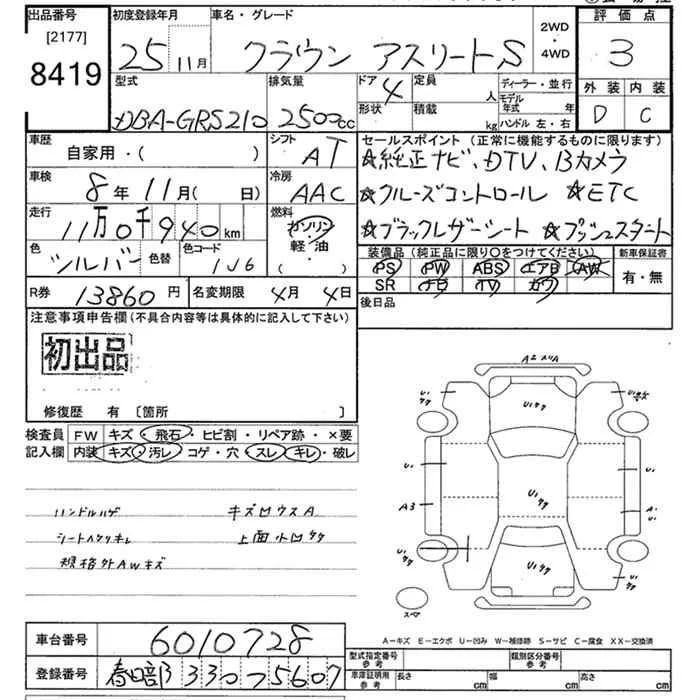 出品番号
[2177]
8419
初度登録年月
25 11月
車名・グレード
クラウン アスリートS
2WD
・
4WD
評価点
3
外装 内装
D C
型式
DBA-GRS210
排気量
2500cc
ドア 4
形状
定員 人
積載 kg
ディーラー・並行
モデル年式 年
ハンドル 左・右
車歴
自家用・( )
シフト
AT
セールスポイント (正常に機能するものに限ります)
☆純正ナビ、DTV、Bカメラ
☆クルーズコントロール ☆ETC
☆ブラックレザーシート ☆プッシュスタート
車検
8年 11月( 日)
冷房
AAC
走行
11万0千940km
燃料
ガソリン
・
軽・油
( )
色
シルバー
色替
色コード
1J6
装備品 (純正品に限り〇をつけてください)
PS PW ABS エアB AW
SR ナビ TV カワ
新車保証書
有・無
R券 13860円
名変期限 4月4日
後日品
注意事項申告欄(不具合内容等は具体的に記入して下さい)
初出品
修復歴 有 〔箇所 〕
検査員
記入欄
FW キズ・飛石・ヒビ割・リペア跡・×要
内装 キズ・汚レ・コゲ・穴・スレ・キレ・破レ
ハンドルハゲ キズ凹ウスA
シートヘタリキレ 上面小凹ササ
規格外AWキズ
U1ササ
U1
ササ
U1
A3
U1ササ
U1
A1
U1
U1
ササ
U1ササ
U1
ササ
スペア
A-キズ E-エクボ U-凹み W-補修跡 S-サビ C-腐食 XX-交換済
車台番号
6010728
登録番号
春日部 330 ス 5607
型式指定番号
参考
類別区分番号
参考
車庫証明用
参考
長さ cm
幅 cm
高さ cm